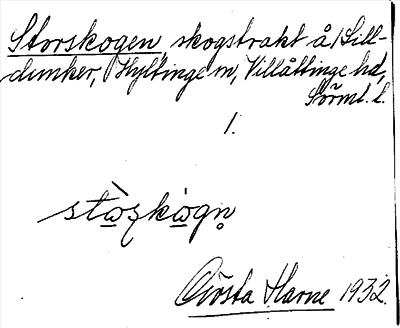 Storskogen, skogstrakt å Sill-
dunker, Hyltinge sn, Villåttinge hd,
Sörml. l.
1.
Gösta Harne 1932.